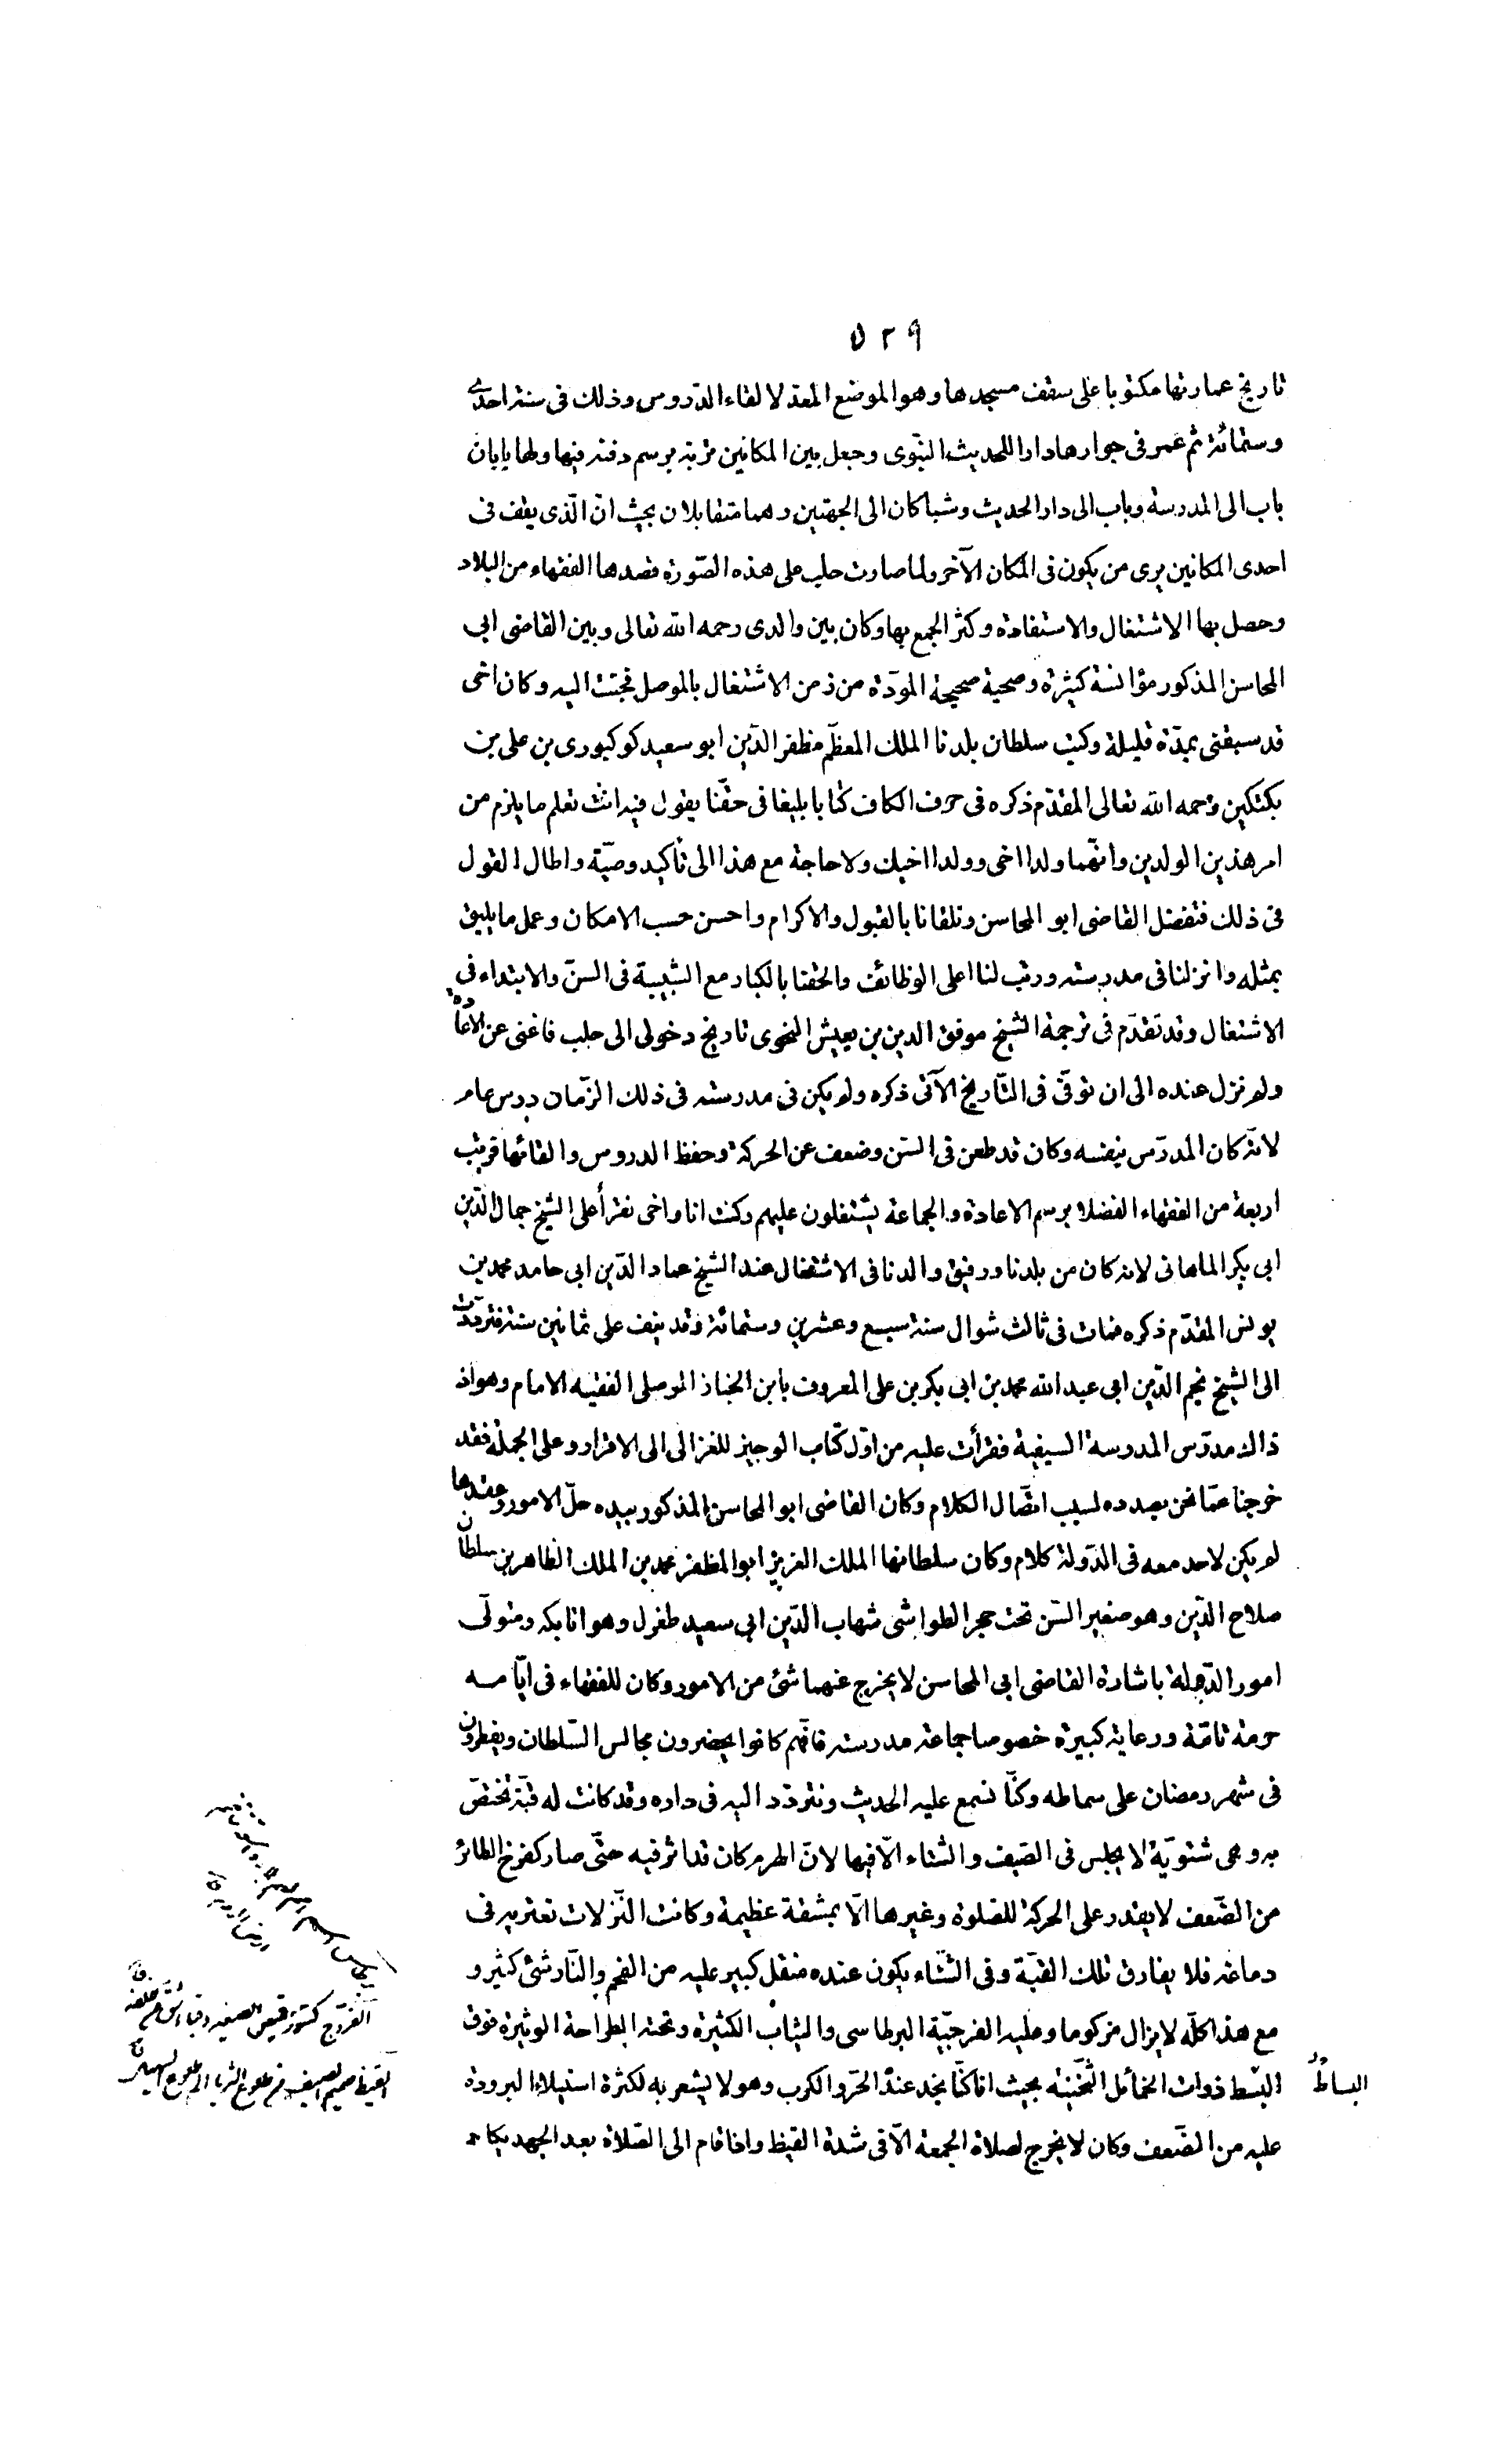 ٥٢٩
تاريخ عمارتها مكتوبا على سقف مسجدها وهو الموضع المعد لالقاء الدّروس وذلك فى سنة احدى
وستمائة ثم عمر فى جوارها دارا للحديث النبوى وجعل بين المكانين تربة برسم دفنه فيها ولها بابان
باب الى المدرسة وباب الى دار الحديث وشباكان الى الجهتين وهما متقابلان بحيث انّ الّذى يقف فى
احدى المكانين يرى من يكون فى المكان الآخر ولما صارت حلب على هذه الصّورة قصدها الفقهاء من البلاد
وحصل بها الاشتغال والاستفادة وكثر الجمع بها وكان بين والدى رحمه الله تعالى وبين القاضى ابى
المحاسن المذكور مؤانسة كثيرة وصحبة صحيحة المودّة من زمن الاشتغال بالموصل فجئت اليه وكان اخى
قد سبقنى بمدّة قليلة وكتب سلطان بلدنا الملك المعظّم مظفر الدّين ابو سعيد كوكبورى بن على بن
بكتكين رحمه الله تعالى المقدّم ذكره فى حرف الكاف كتابا بليغا فى حقّنا يقول فيه انت تعلم ما يلزم من
امر هذين الولدين وانّهما ولدا اخى وولدا اخيك ولا حاجة مع هذا الى تأكيد وصيّة واطال القول
فى ذلك فتفضل القاضى ابو المحاسن وتلقانا بالقبول والاكرام واحسن حسب الامكان وعمل ما يليق
بمثله وانزلنا فى مدرسته ورتب لنا اعلى الوظائف والحقنا بالكبار مع الشبيبة فى السنّ والابتداء فى
الاشتغال وقد تقدّم فى ترجمة الشيخ موفق الدين بن يعيش النحوى تاريخ دخولى الى حلب فاغنى عن الاعادة
ولم نزل عنده الى ان توفّى فى التّاريخ الآتى ذكره ولم يكن فى مدرسته فى ذلك الزّمان درس عام
لانّه كان المدرّس بنفسه وكان قد طعن فى السّن وضعف عن الحركة وحفظ الدروس والقائها فرتب
اربعة من الفقهاء الفضلا برسم الاعادة والجماعة يشتغلون عليهم وكنت انا واخى نقرأ على الشيخ جمال الدّين
ابى بكر الماهانى لانه كان من بلدنا ورفيق والدنا فى الاشتغال عند الشيخ عماد الدّين ابى حامد محمد بن
يونس المقدّم ذكره فمات فى ثالث شوال سنة سبع وعشرين وستمائة وقد نيف على ثمانين سنة فتردّدت
الى الشيخ نجم الدّين ابى عبد الله محمد بن ابى بكر بن على المعروف بابن الخباز الموصلى الفقيه الامام وهو اذ
ذاك مدرّس المدرسة السيفية فقرأت عليه من اوّل كتاب الوجيز للغزالى الى الاقرار وعلى الجملة فقد
خرجنا عمّا نحن بصدده لسبب اتّصال الكلام وكان القاضى ابو المحاسن المذكور بيده حلّ الامور وعقدها
لم يكن لاحد معه فى الدّولة كلام وكان سلطانها الملك العزيز ابو المظفر محمد بن الملك الظاهر بن سلطان
صلاح الدّين وهو صغير السّن تحت حجر الطواشى شهاب الدّين ابى سعيد طغرل وهو اتابكه ومتولّى
امور الدّولة باشارة القاضى ابى المحاسن لا يخرج عنهما شئ من الامور وكان للفقهاء فى ايّامه
حرمة تامّة ورعاية كبيرة خصوصا جماعة مدرسته فانّهم كانوا يحضرون مجالس السّلطان ويفطرون
فى شهر رمضان على سماطه وكنّا نسمع عليه الحديث ونتردّد اليه فى داره وقد كانت له قبّة تختصّ
به وهى شتويّة لا يجلس فى الصّيف والشتاء الّا فيها لانّ الهرم كان قد اثر فيه حتّى صار كفرخ الطائر
من الضّعف لا يقدر على الحركة للصلوة وغيرها الّا بمشقة عظيمة وكانت النّزلات تعتريه فى
دماغه فلا يفارق تلك القبّة وفى الشّتاء يكون عنده منقل كبير عليه من الفحم والنّار شئ كثير و
مع هذا كلّه لا يزال مزكوما وعليه الفرجيّة البرطاسى والثياب الكثيرة وتحته الطراحة الوثيرة فوق
البسط ذوات الخمائل الثّخينه بحيث انا كنّا نجد عنده الحرّ والكرب وهو لا يشعر به لكثرة استيلاء البرودة
عليه من الضّعف وكان لا يخرج لصلاة الجمعة الّا فى شدّة القيظ واذا قام الى الصّلاة بعد الجهد يكاد
البساط
الفرّوج كتنور قميص الصغير وقباء شق من خلفه ق
القيظ صميم الصيف من طلوع الثريا الى طلوع سهيل ق